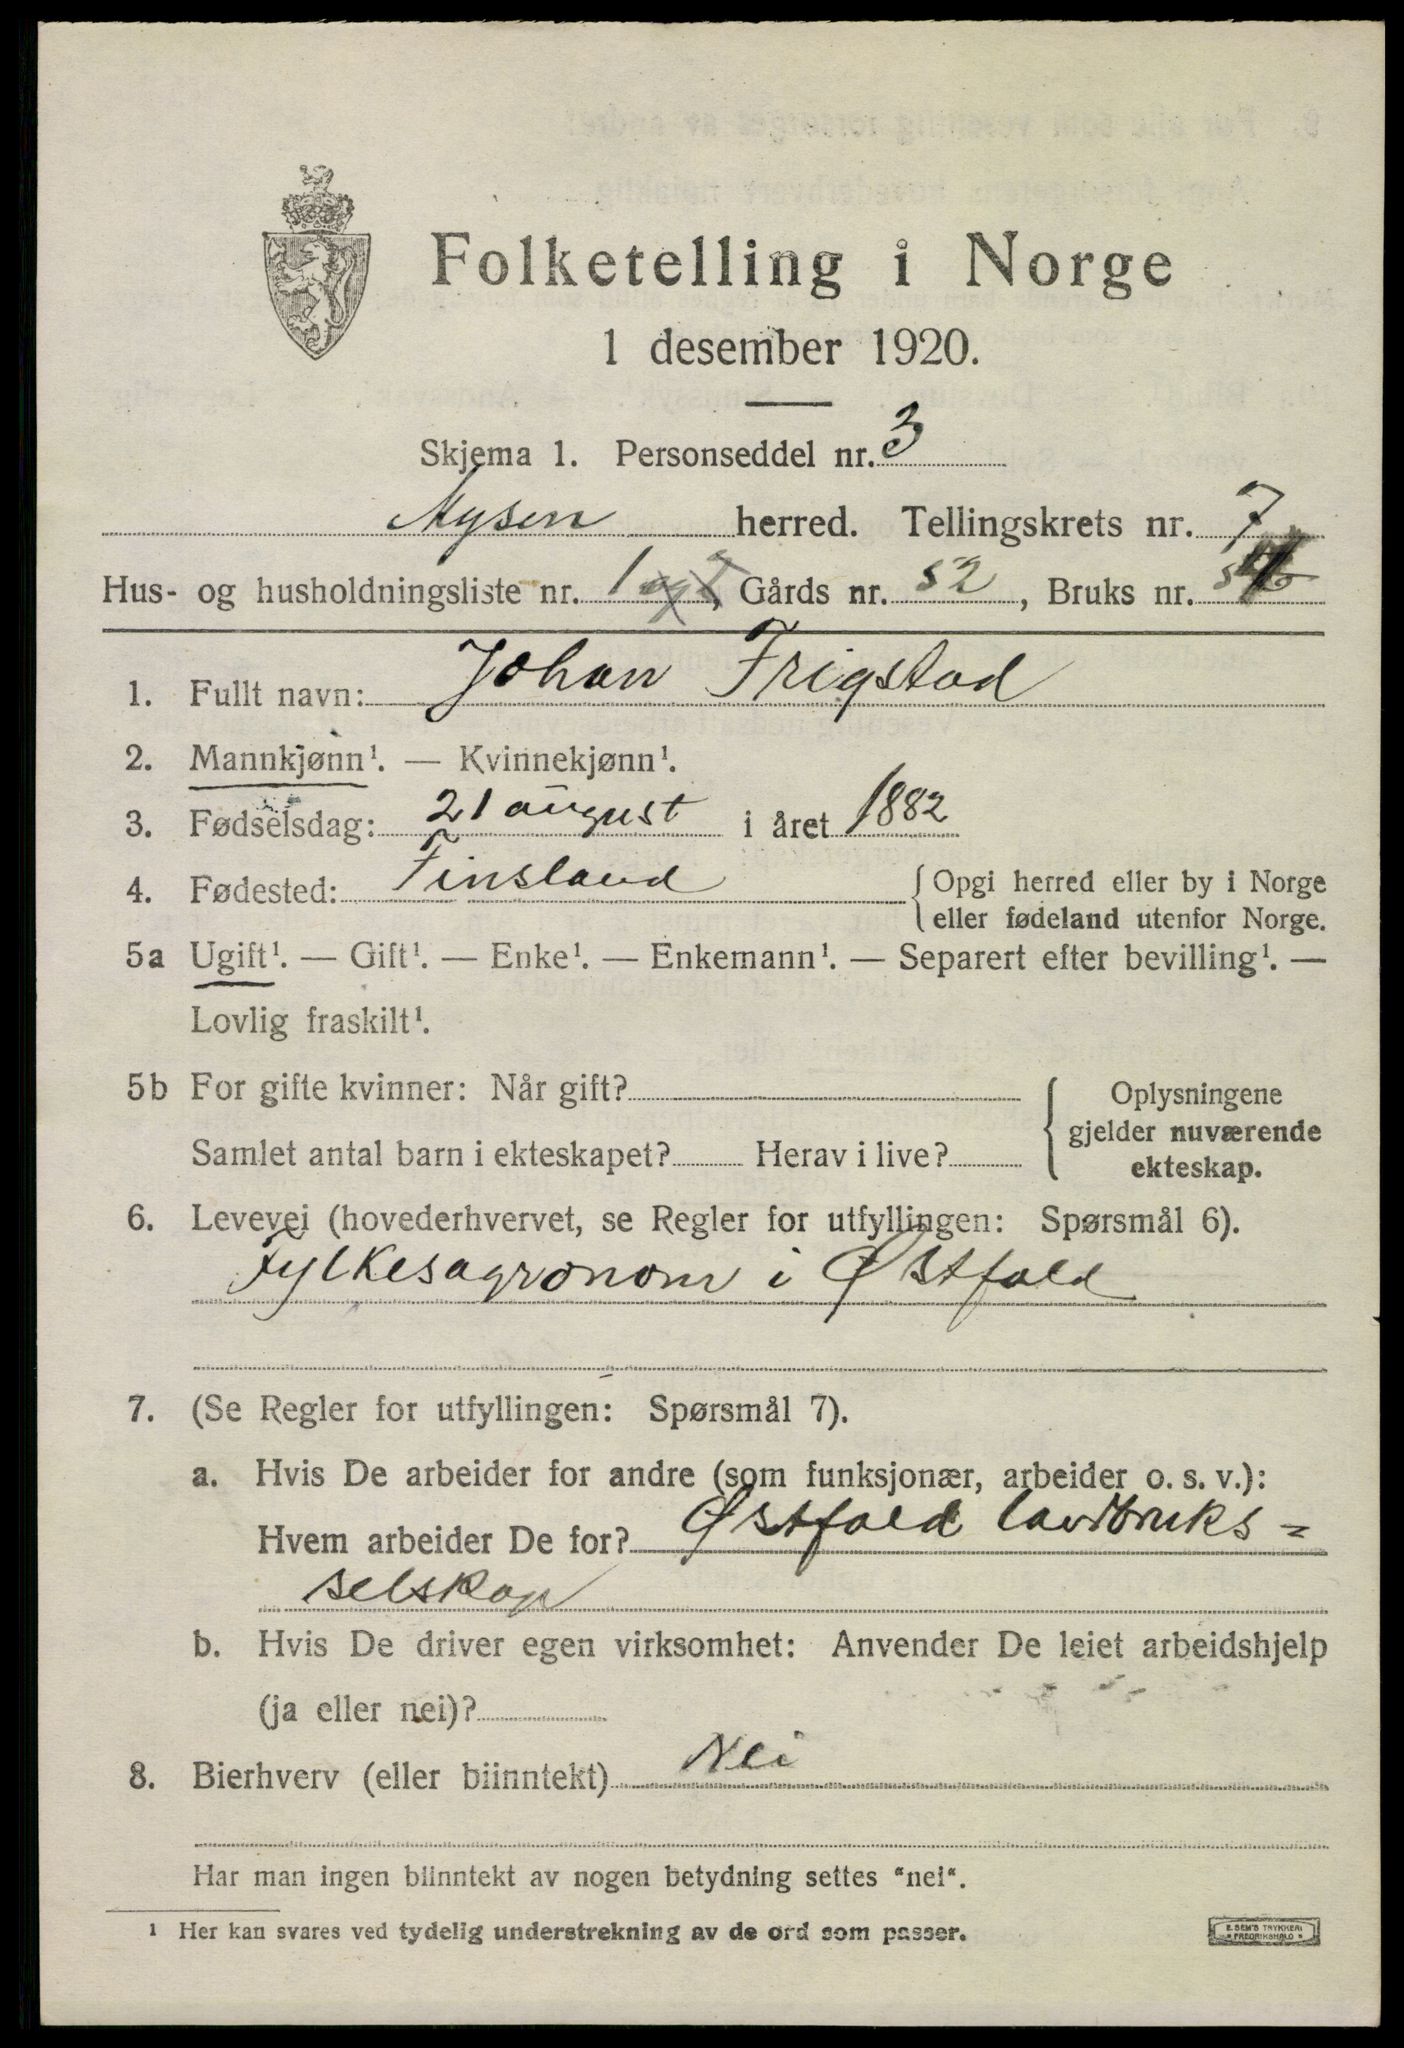 Folketelling i Norge
1 desember 1920.
Skjema 1. Personseddel nr. 3
Mysen herred. Tellingskrets nr. 7
Hus- og husholdningsliste nr. 1 Gårds nr. 52, Bruks nr.
1. Fullt navn: Johan Frigstad
2. Mannkjønn¹. — Kvinnekjønn¹.
3. Fødselsdag: 21 august i året 1882
4. Fødested: Finsland { Opgi herred eller by i Norge
eller fødeland utenfor Norge.
5a Ugift¹. — Gift¹. — Enke¹. — Enkemann¹. — Separert efter bevilling¹. —
Lovlig fraskilt¹.
5b For gifte kvinner: Når gift? { Oplysningene
gjelder nuværende
Samlet antal barn i ekteskapet? Herav i live? ekteskap.
6. Levevei (hovederhvervet, se Regler for utfyllingen: Spørsmål 6).
Fylkesagronom i Østfold
7. (Se Regler for utfyllingen: Spørsmål 7).
a. Hvis De arbeider for andre (som funksjonær, arbeider o. s. v.):
Hvem arbeider De for? Østfold landbruks=
selskap
b. Hvis De driver egen virksomhet: Anvender De leiet arbeidshjelp
(ja eller nei)?
8. Bierhverv (eller biinntekt) Nei
Har man ingen biinntekt av nogen betydning settes "nei".
1 Her kan svares ved tydelig understrekning av de ord som passer.
E. SEM'S TRYKKERI
FREDRIKSHALD